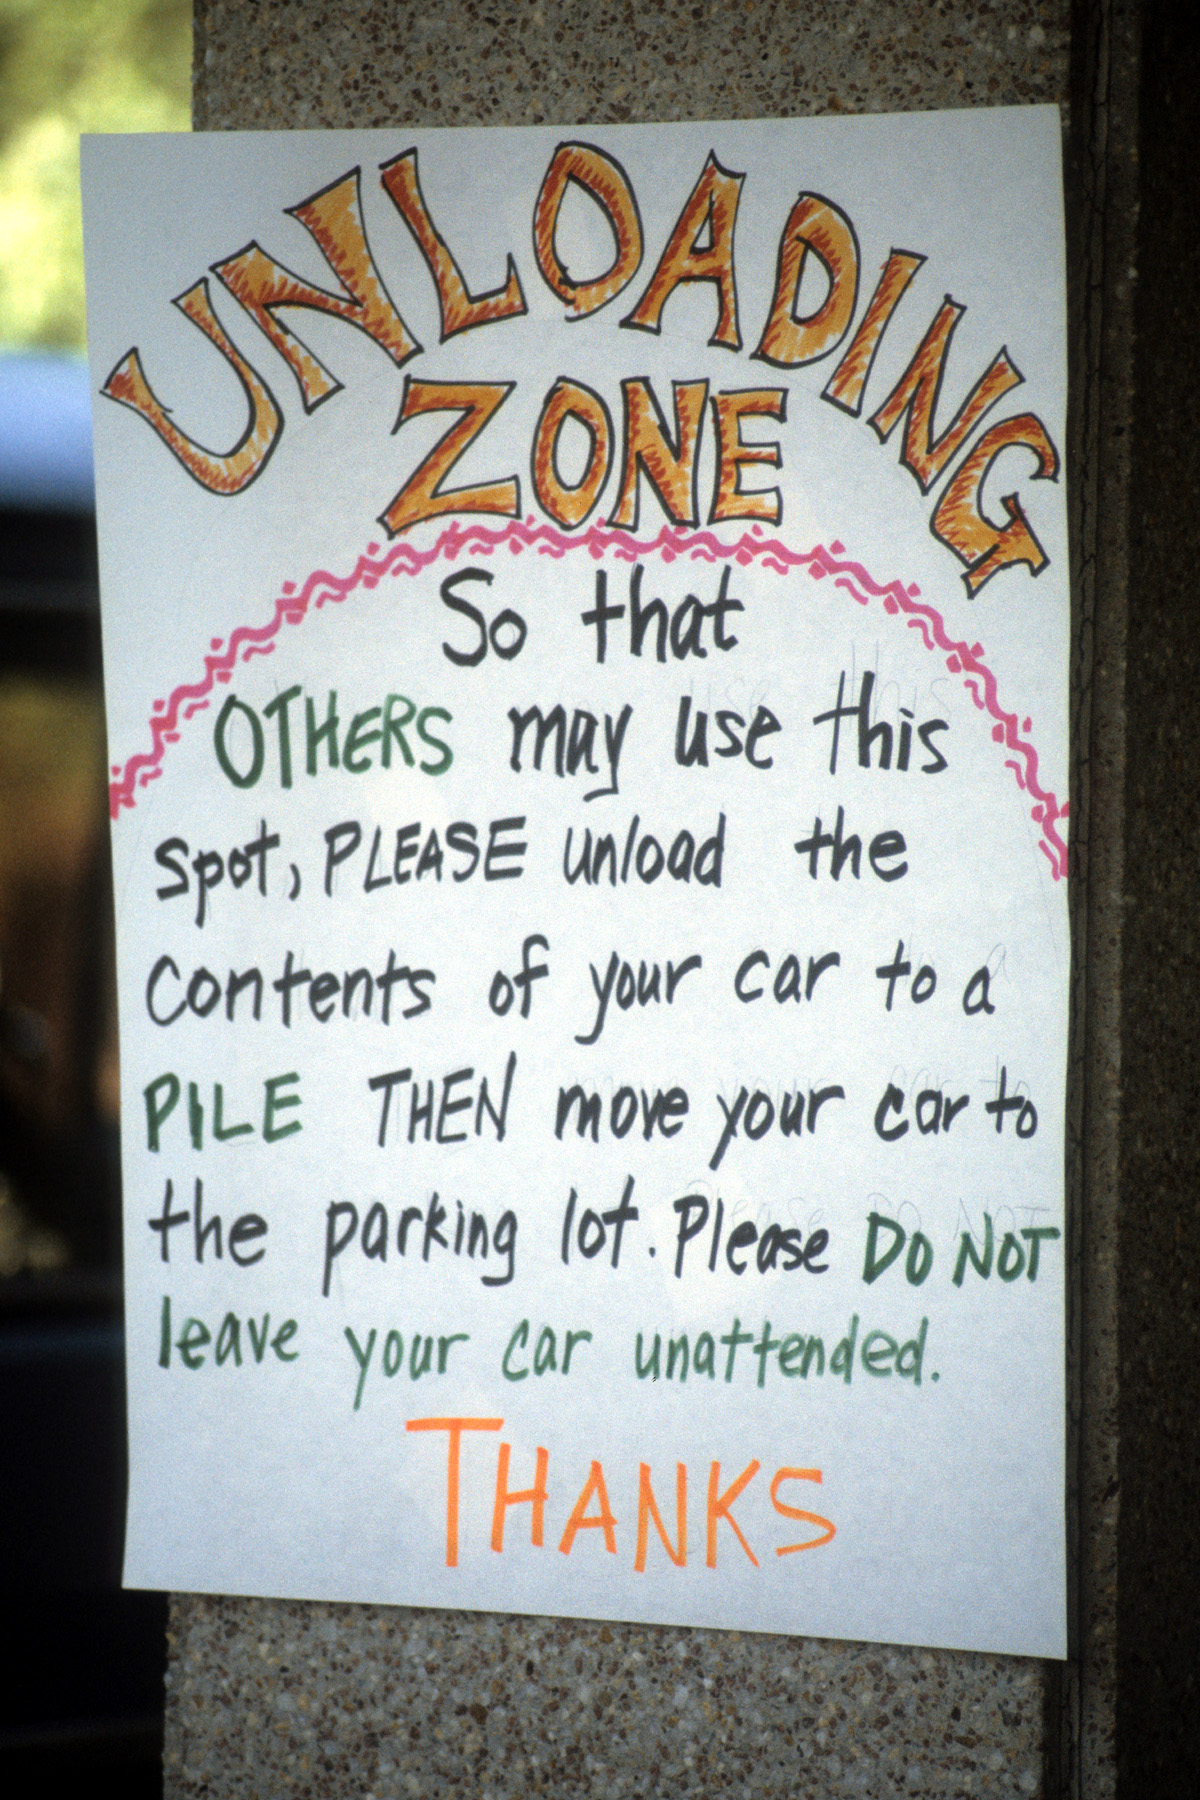 UNLOADING
ZONE
So that
OTHERS may use this
spot, PLEASE unload the
contents of your car to a
PILE THEN move your car to
the parking lot. Please DO NOT
leave your car unattended.
THANKS